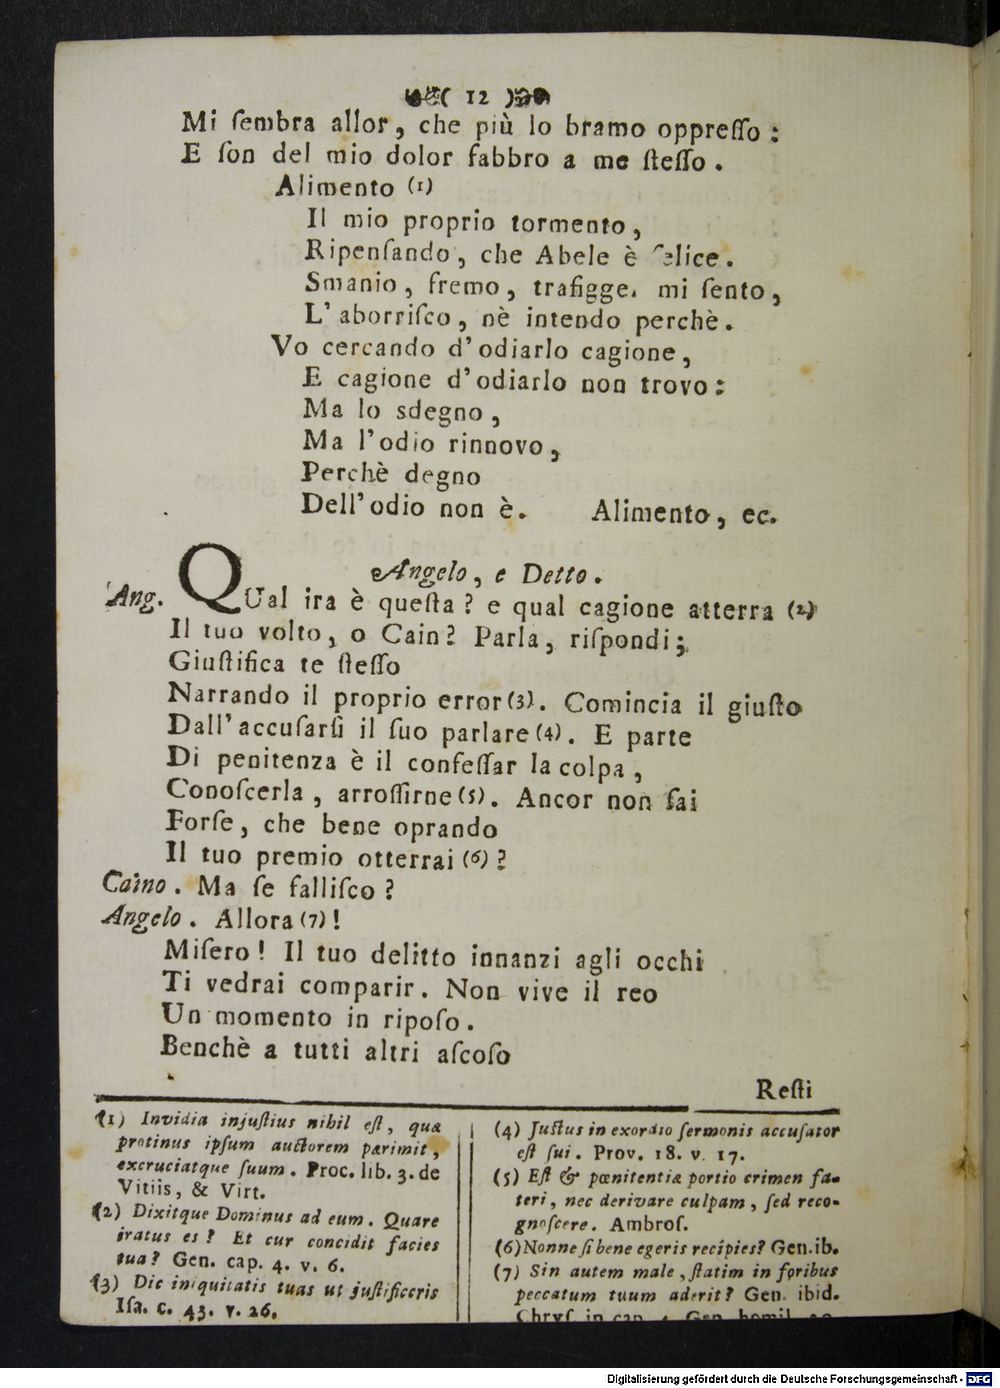 ( 12 )
Mi ſembra allor, che più lo bramo oppreſſo:
E ſon del mio dolor fabbro a me ſteſſo.
Alimento (1)
Il mio proprio tormento,
Ripenſando, che Abele è felice.
Smanio, fremo, trafigger mi ſento,
L'aborriſco, nè intendo perchè.
Vo cercando d'odiarlo cagione,
E cagione d'odiarlo non trovo:
Ma lo sdegno,
Ma l'odio rinnovo,
Perchè degno
Dell'odio non è. Alimento, ec.
Angelo, e Detto.
Ang. QUal ira è queſta? e qual cagione atterra (2)
Il tuo volto, o Cain? Parla, riſpondi;
Giuſtifica te ſteſſo
Narrando il proprio error (3). Comincia il giuſto
Dall'accuſarſi il ſuo parlare (4). E parte
Di penitenza è il confeſſar la colpa,
Conoſcerla, arroſſirne (5). Ancor non ſai
Forſe, che bene oprando
Il tuo premio otterrai (6)?
Caino. Ma ſe falliſco?
Angelo. Allora (7)!
Miſero! Il tuo delitto innanzi agli occhi
Ti vedrai comparir. Non vive il reo
Un momento in ripoſo.
Benchè a tutti altri aſcoſo
Reſti
(1) Invidia injuſtius nihil eſt, quæ
protinus ipſum auctorem perimit,
excruciatque ſuum. Proc. lib. 3. de
Vitiis, & Virt.
(2) Dixitque Dominus ad eum. Quare
iratus es? Et cur concidit facies
tua? Gen. cap. 4. v. 6.
(3) Dic iniquitatis tuas ut juſtificeris
Iſa. c. 43. v. 26.
(4) Juſtus in exordio ſermonis accuſator
eſt ſui. Prov. 18. v. 17.
(5) Eſt & pœnitentiæ portio crimen fa-
teri, nec derivare culpam, ſed reco-
gnoſcere. Ambroſ.
(6) Nonne ſi bene egeris recipies? Gen. ib.
(7) Sin autem male, ſtatim in foribus
peccatum tuum aderit? Gen. ibid.
Chryſ. in cap. 4. Gen. homil.
Digitalisierung gefördert durch die Deutsche Forschungsgemeinschaft - DFG